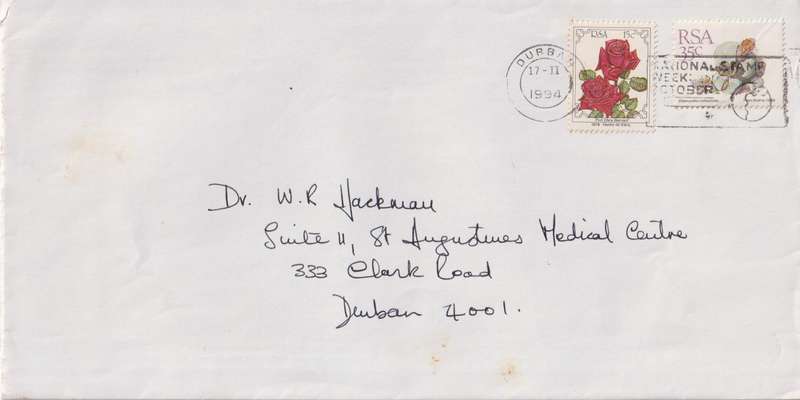 RSA 15c
Prof. Chris Barnard
RSA
35c
DURBAN
17-II
1994
NATIONAL STAMP
WEEK:
OCTOBER
Dr. W.R Hackman
Suite 11, St Augustines Medical Centre
333 Clark Road
Durban 4001.